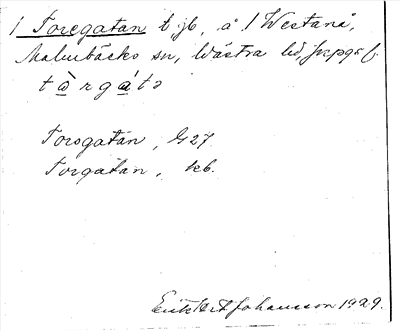 1 Toregatan t jb, å 1 Westanå,
Malmbäcks sn, Västra hd, Jkpgs l.
tὰrgátə
Toregatan, G27.
Torgatan, kb.
Erik Johansson 1929.